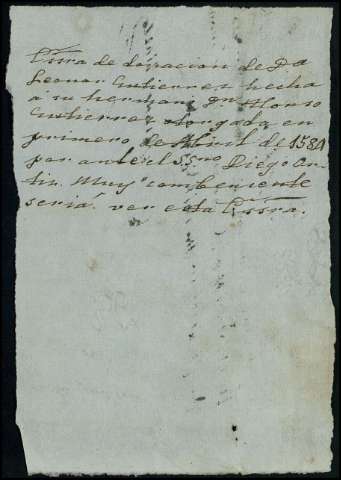 Essra de donacion de D.a
Leonor Gutierrez hecha
á su hermano Dn Alonso
Gutierrez otorgada en
primero de Abril de 1580
por ante el SSno Diego
tin. Muy combeniente
seria ver esta Essra.